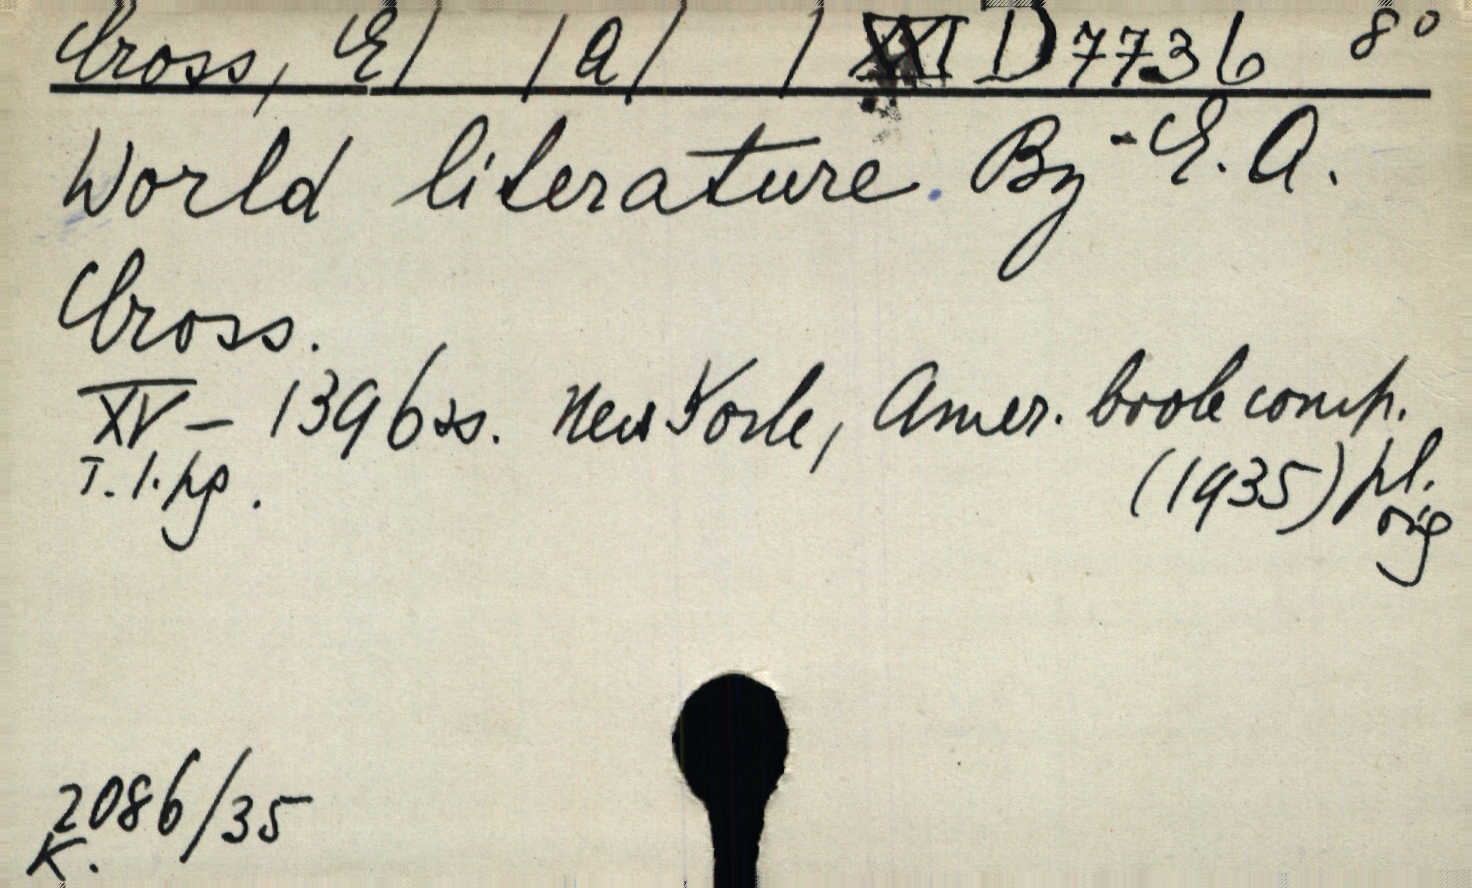 Cross, E/ /A/ / XXI D 7736 8°
World literature. By E. A.
Cross.
XV – 1396 ss. New York, Amer. book comp.
T. l. pg. (1935) pl.
orig
2086/35
K.